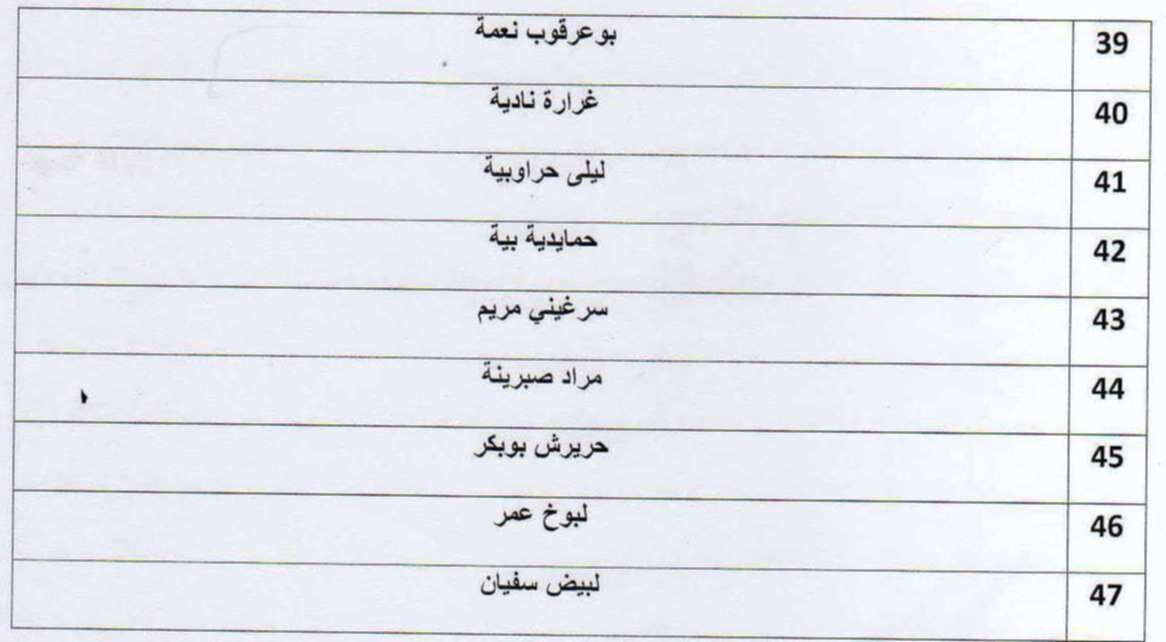 39 بوعرقوب نعمة
40 غرارة نادية
41 ليلى حراوبية
42 حمايدية بية
43 سرغيني مريم
44 مراد صبرينة
45 حريرش بوبكر
46 لبوخ عمر
47 لبيض سفيان